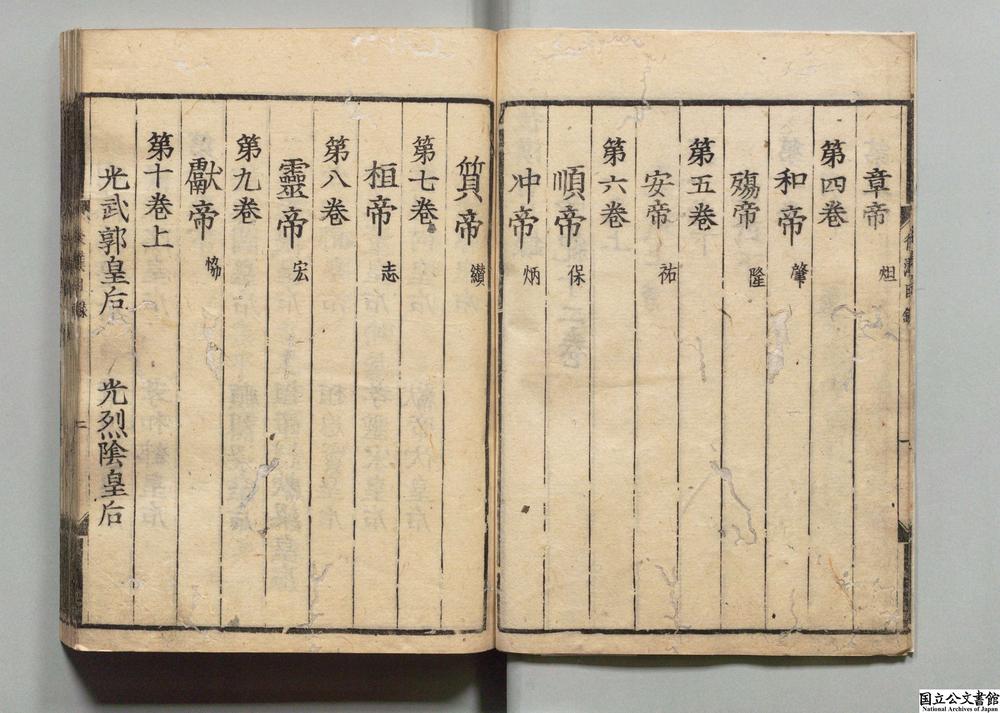 章帝 炟
第四卷
和帝 肇
殤帝 隆
第五卷
安帝 祐
第六卷上
順帝 保
冲帝 炳
質帝 纘
第七卷
桓帝 志
第八卷
靈帝 宏
第九卷
獻帝 恊
第十卷上
光武郭皇后 光烈陰皇后
国立公文書館
National Archives of Japan